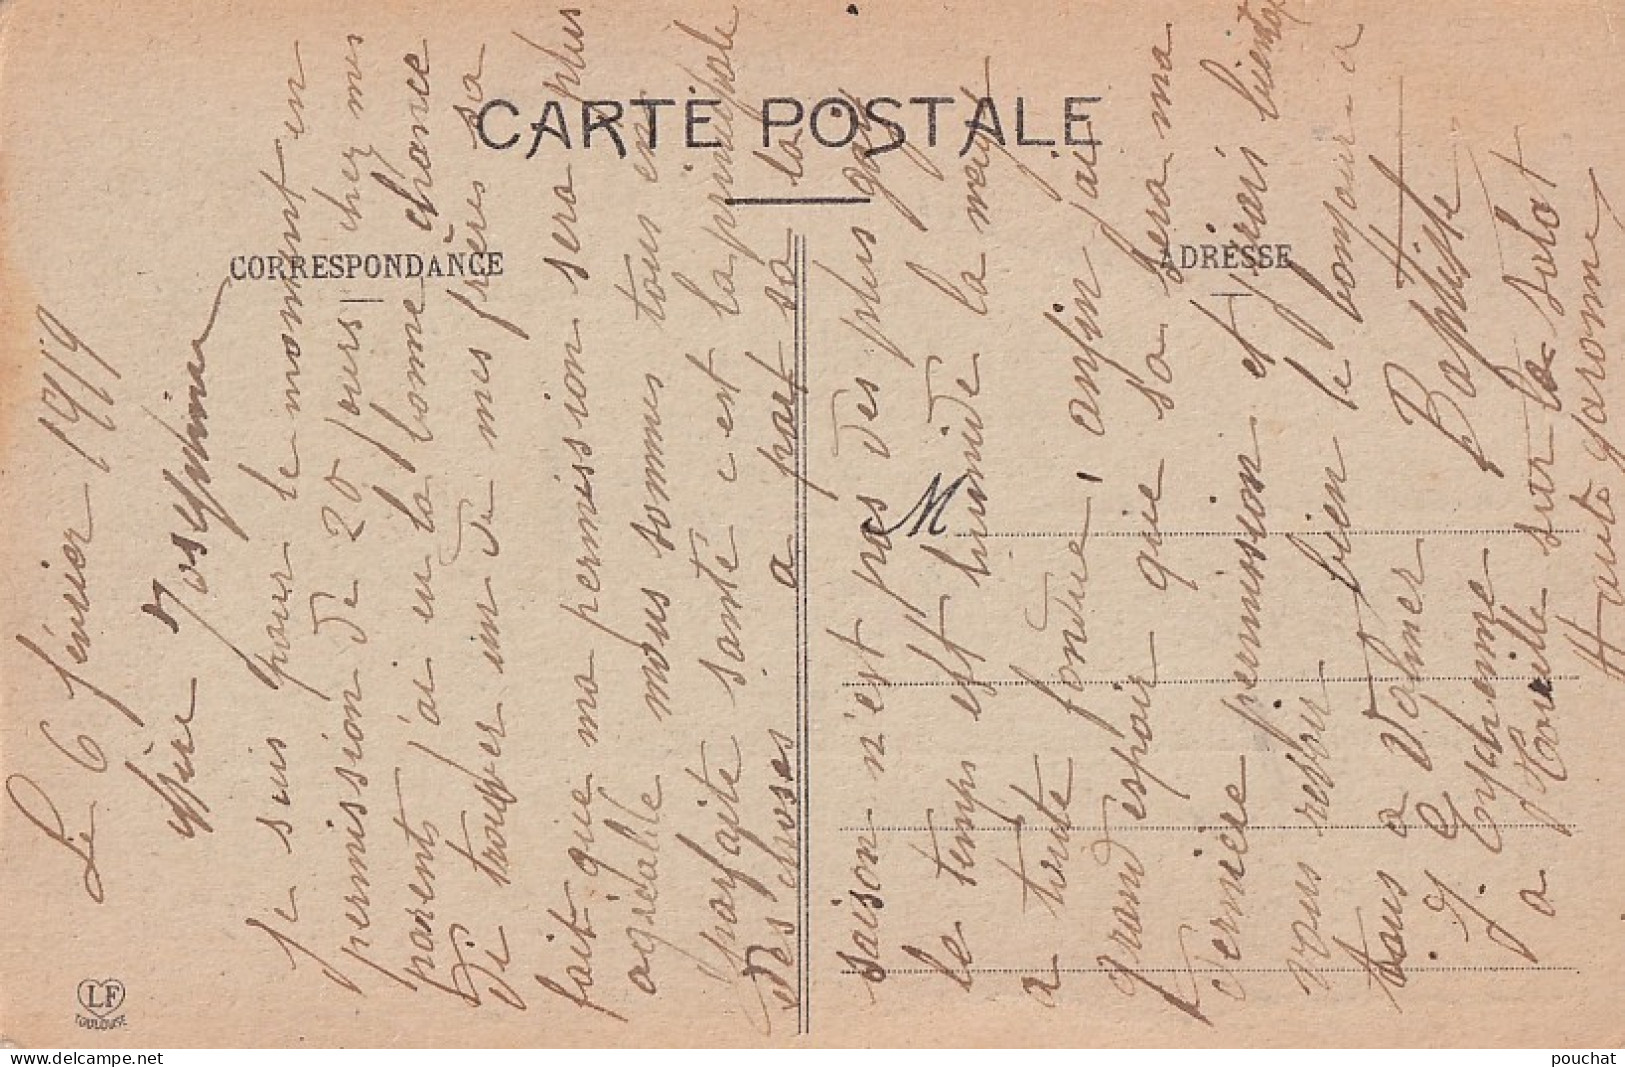 CARTE POSTALE
CORRESPONDANCE
ADRESSE
M
LF
TOULOUSE
Le 6 février 1919
chère Josephine
Je suis pour le momment en
permission de 20 jours chez mes
parents j'ai eu la bonne chance
de trouver un de mes frères sa
fait que ma permission sera plus
agréable nous sommes tous en
parfaite santé c est la principale
des choses a part sa la
saison n'est pas des plus gay
le temps est humide la neige
a toute fondue, enfin jai
grand espoir que sa sera ma
dernière permission et jirais bientot
vous revoir bien le bonjour a
tous a Valmer Baptiste
J. Eychenne
a Noueille sur la Solat
Haute garonne
pouchat
www.delcampe.net